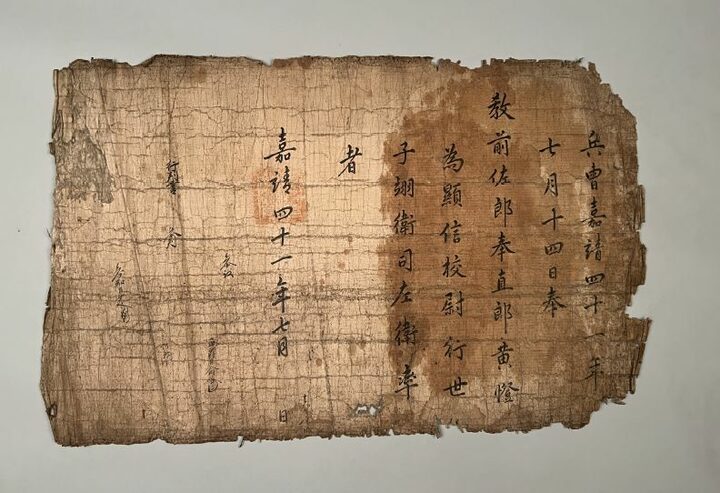 兵曹嘉靖四十一年
七月十四日奉
敎前佐郎奉直郎黃憕
為顯信校尉行世
子翊衛司左衛率
者
嘉靖四十一年七月 日